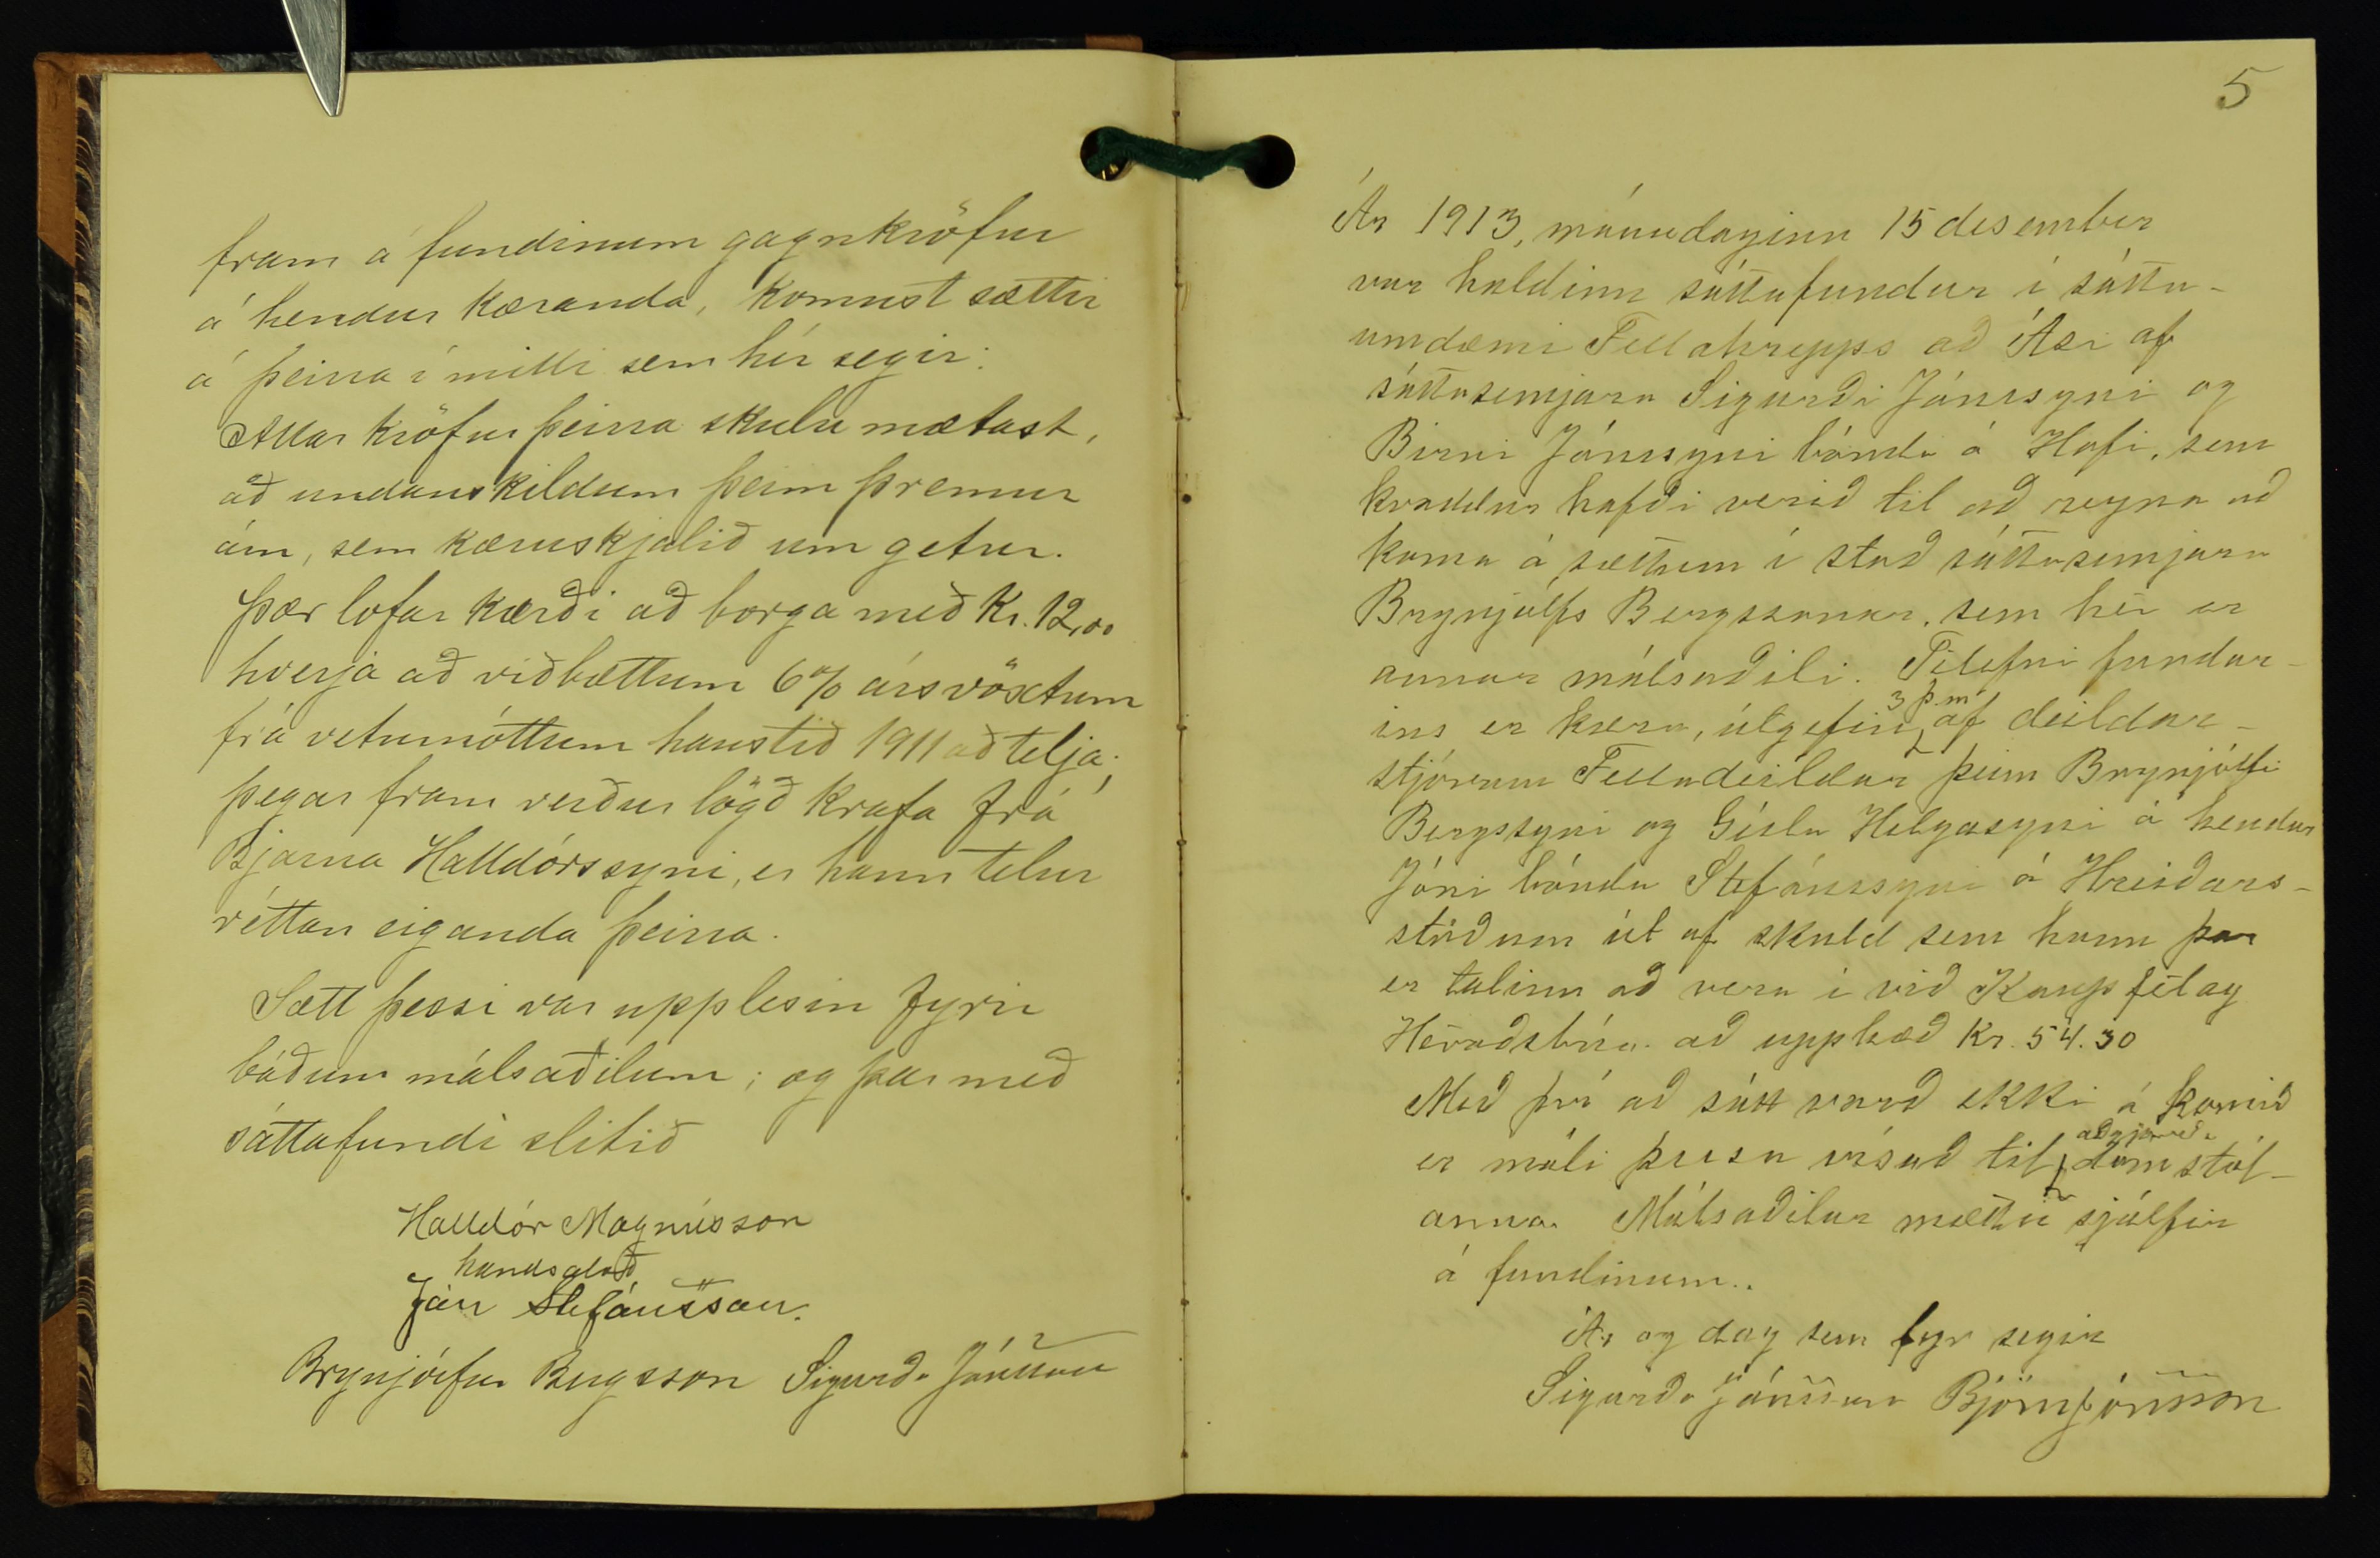 fram á fundinum gagnkröfur
á hendur kæranda, komust sættir
á þeirra í milli sem hér segir:
Allar kröfur þeirra skulu mætast,
að undanskildum þeim þremur
ám, sem kæruskjalið um getur.
Þær lofar kærði að borga með Kr. 12,00
hverja að viðbættum 6% ársvöxtum
frá veturnóttum haustið 1911 að telja;
þegar fram verður lögð krafa frá
Bjarna Halldórssyni, er hann telur
réttan eiganda þeirra.
Sætt þessi var upplesin fyrir
báðum málsaðilum; og þar með
sáttafundi slitið
Halldór Magnússon
handsalað
Jón Stefánsson.
Brynjólfur Bergsson Sigurðr Jónsson
5
Ár 1913, mánudaginn 15 desember
var haldinn sáttafundur í sátta-
umdæmi Fellahrepps að Ási af
sáttasemjara Sigurði Jónssyni og
Birni Jónssyni bónda á Hofi, sem
kvaddur hafði verið til að reyna að
koma á sættum í stað sáttasemjara
Brynjólfs Bergssonar, sem hér er
annar málsaðili. Tilefni fundar-
3 þ.m.
ins er kæra, útgefin af deildar-
stjórum Felladeildar þeim Brynjólfi
Bergssyni og Gísla Helgasyni á hendur
Jóni bónda Stefánssyni á Hreiðars-
stöðum út af skuld sem hann þar
er talinn að vera í við Kaupfélag
Héraðsbúa að upphæð Kr. 54.30
Með því að sátt varð ekki á komið
aðgjörða
er máli þessu vísað til dómstól-
anna. Málsaðilar mættu sjálfir
á fundinum..
Ár og dag sem fyr segir
Sigurðr Jónsson Björn Jónsson